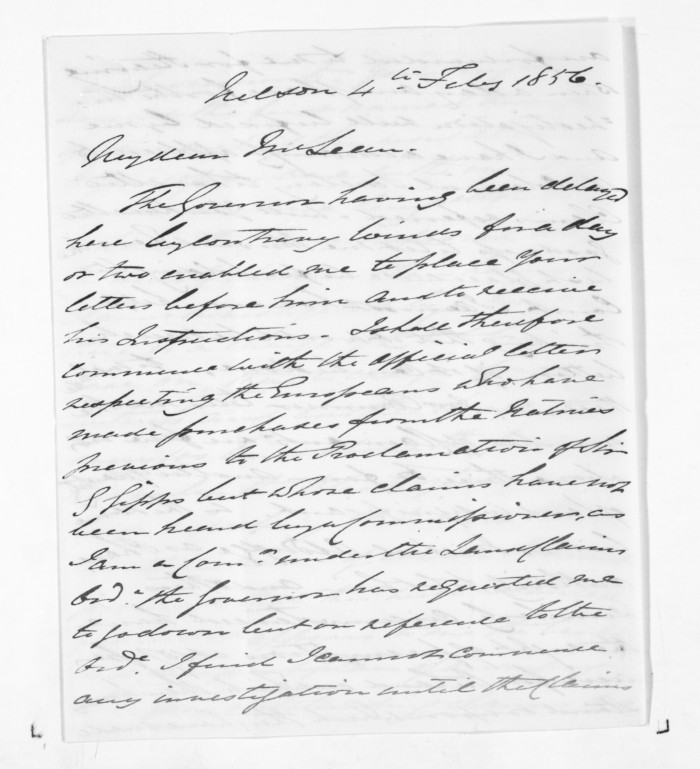 Nelson 4th Feby 1856.
My dear McLean.
The Governor having been delayed
here by contrary winds for a day
or two enabled me to place your
letters before him and to receive
his Instructions. I shall therefore
commence with the official letters
respecting the Europeans who have
made purchases from the Natives
previous to the Proclamation of Sir
G Gipps but whose claims have not
been heard by a Commissioner, as
I am a Comr. under the Land Claims
Ord.e the Governor has requested me
to go down but on reference to the
Ord.e I find I cannot commence
any investigation until the Claims